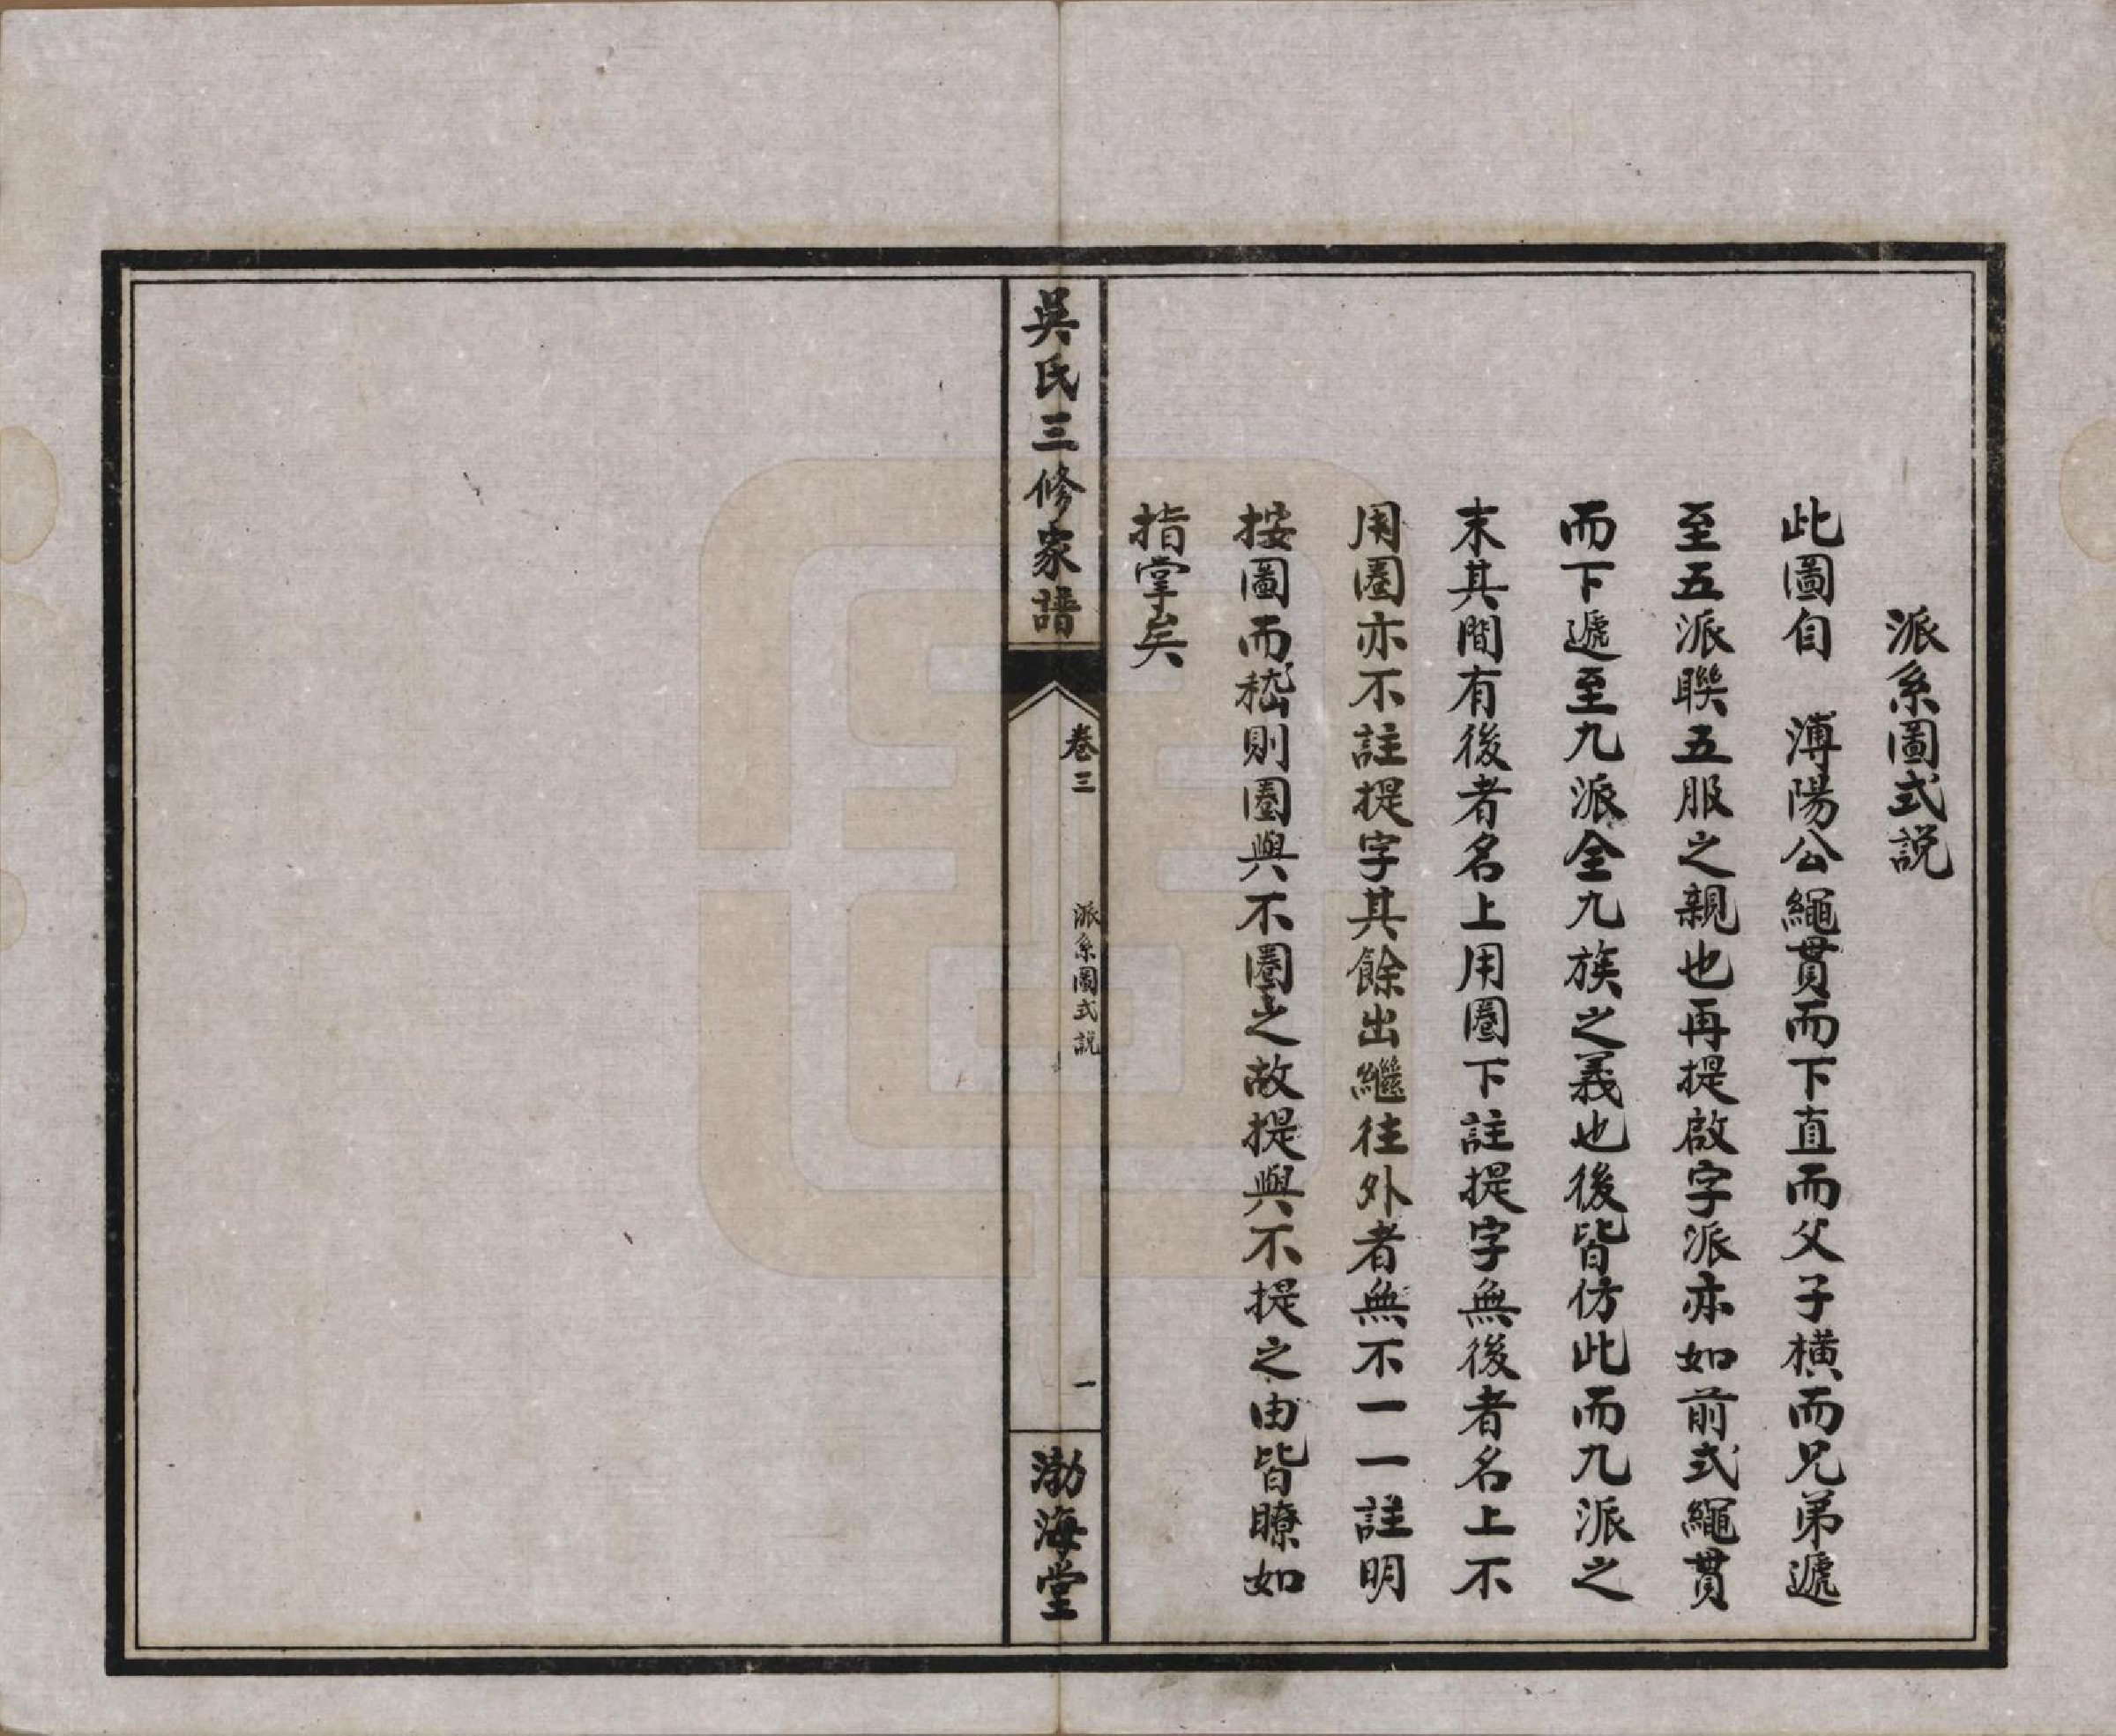 派系圖式説
此圖自　溥陽公繩貫而下直而父子橫而兄弟遞
至五派聯五服之親也再提啟字派亦如前式繩貫
而下遞至九派全九族之義也後皆仿此而九派之
末其間有後者名上用圈下註提字無後者名上不
用圈亦不註提字其餘出繼往外者無不一一註明
按圖而嵇則圈與不圈之故提與不提之由皆瞭如
指掌矣
吳氏三修家譜
卷三
派系圖式説
一
渤海堂